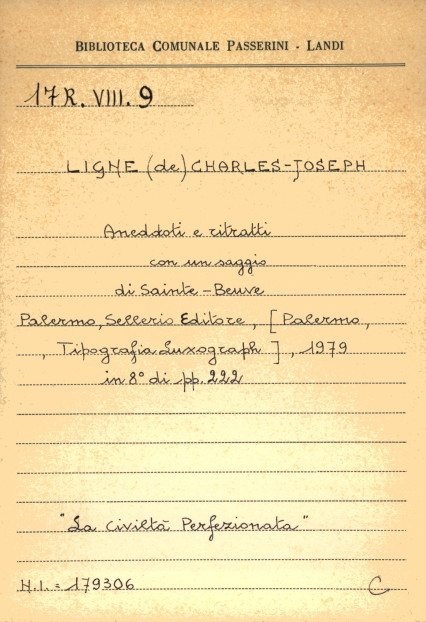 BIBLIOTECA COMUNALE PASSERINI - LANDI
17R. VIII. 9
LIGNE (de) CHARLES-JOSEPH
Aneddoti e ritratti
con un saggio
di Sainte-Beuve
Palermo, Sellerio Editore, [Palermo,
, Tipografia Luxograph], 1979
in 8° di pp. 222
"La Civiltà Perfezionata"
N.I. = 179306
C